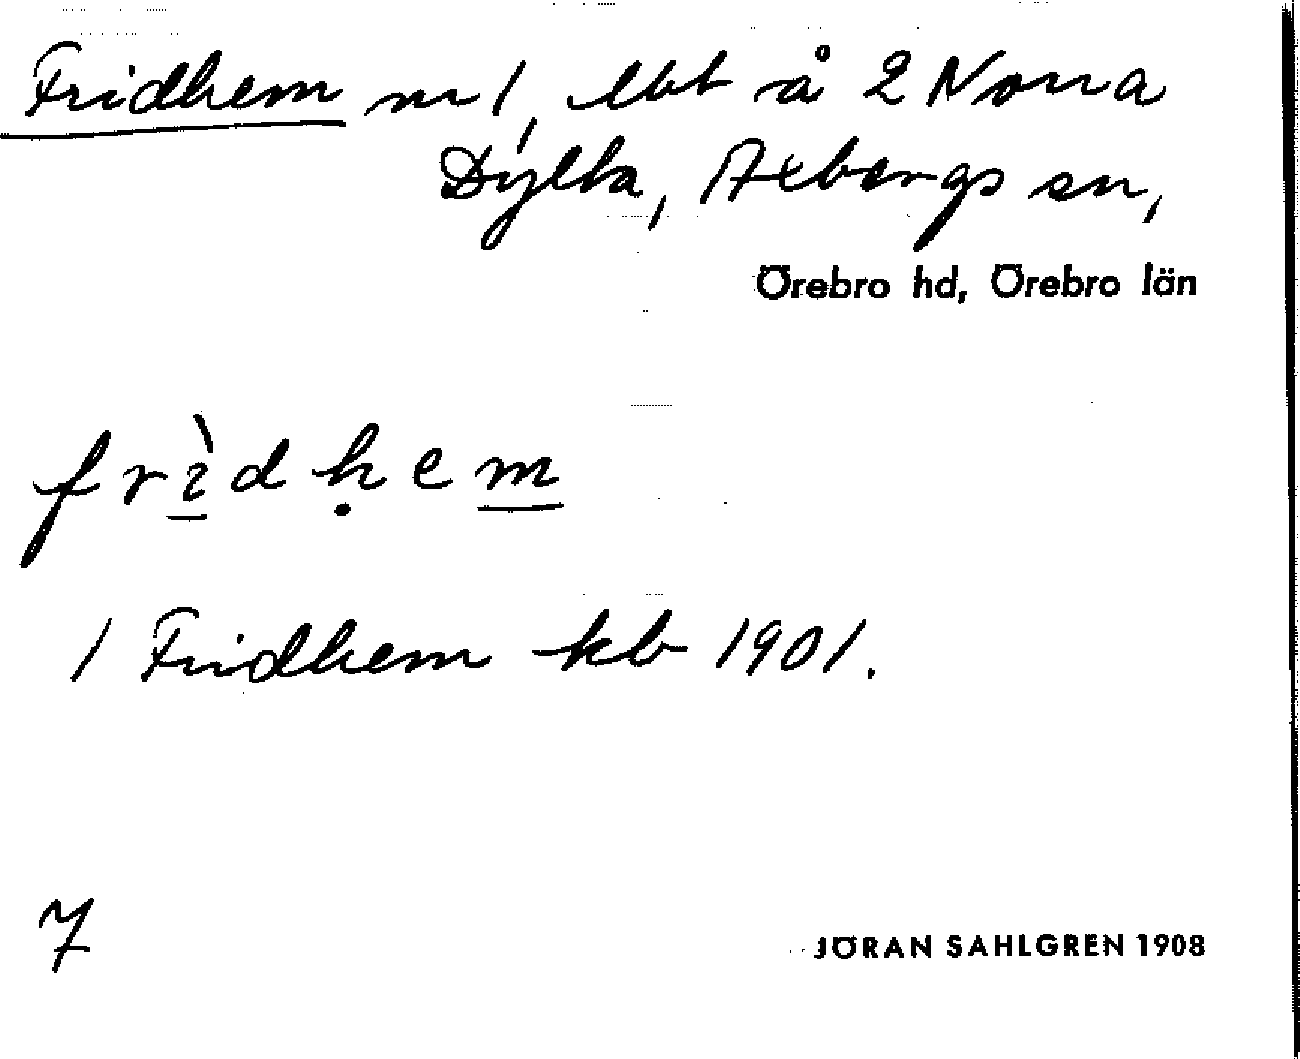 Fridhem nr 1, lbt å 2 Norra
Dylta, Axbergs sn,
Örebro hd, Örebro län
frìdḥem
1 Fridhem kb 1901.
7
JÖRAN SAHLGREN 1908